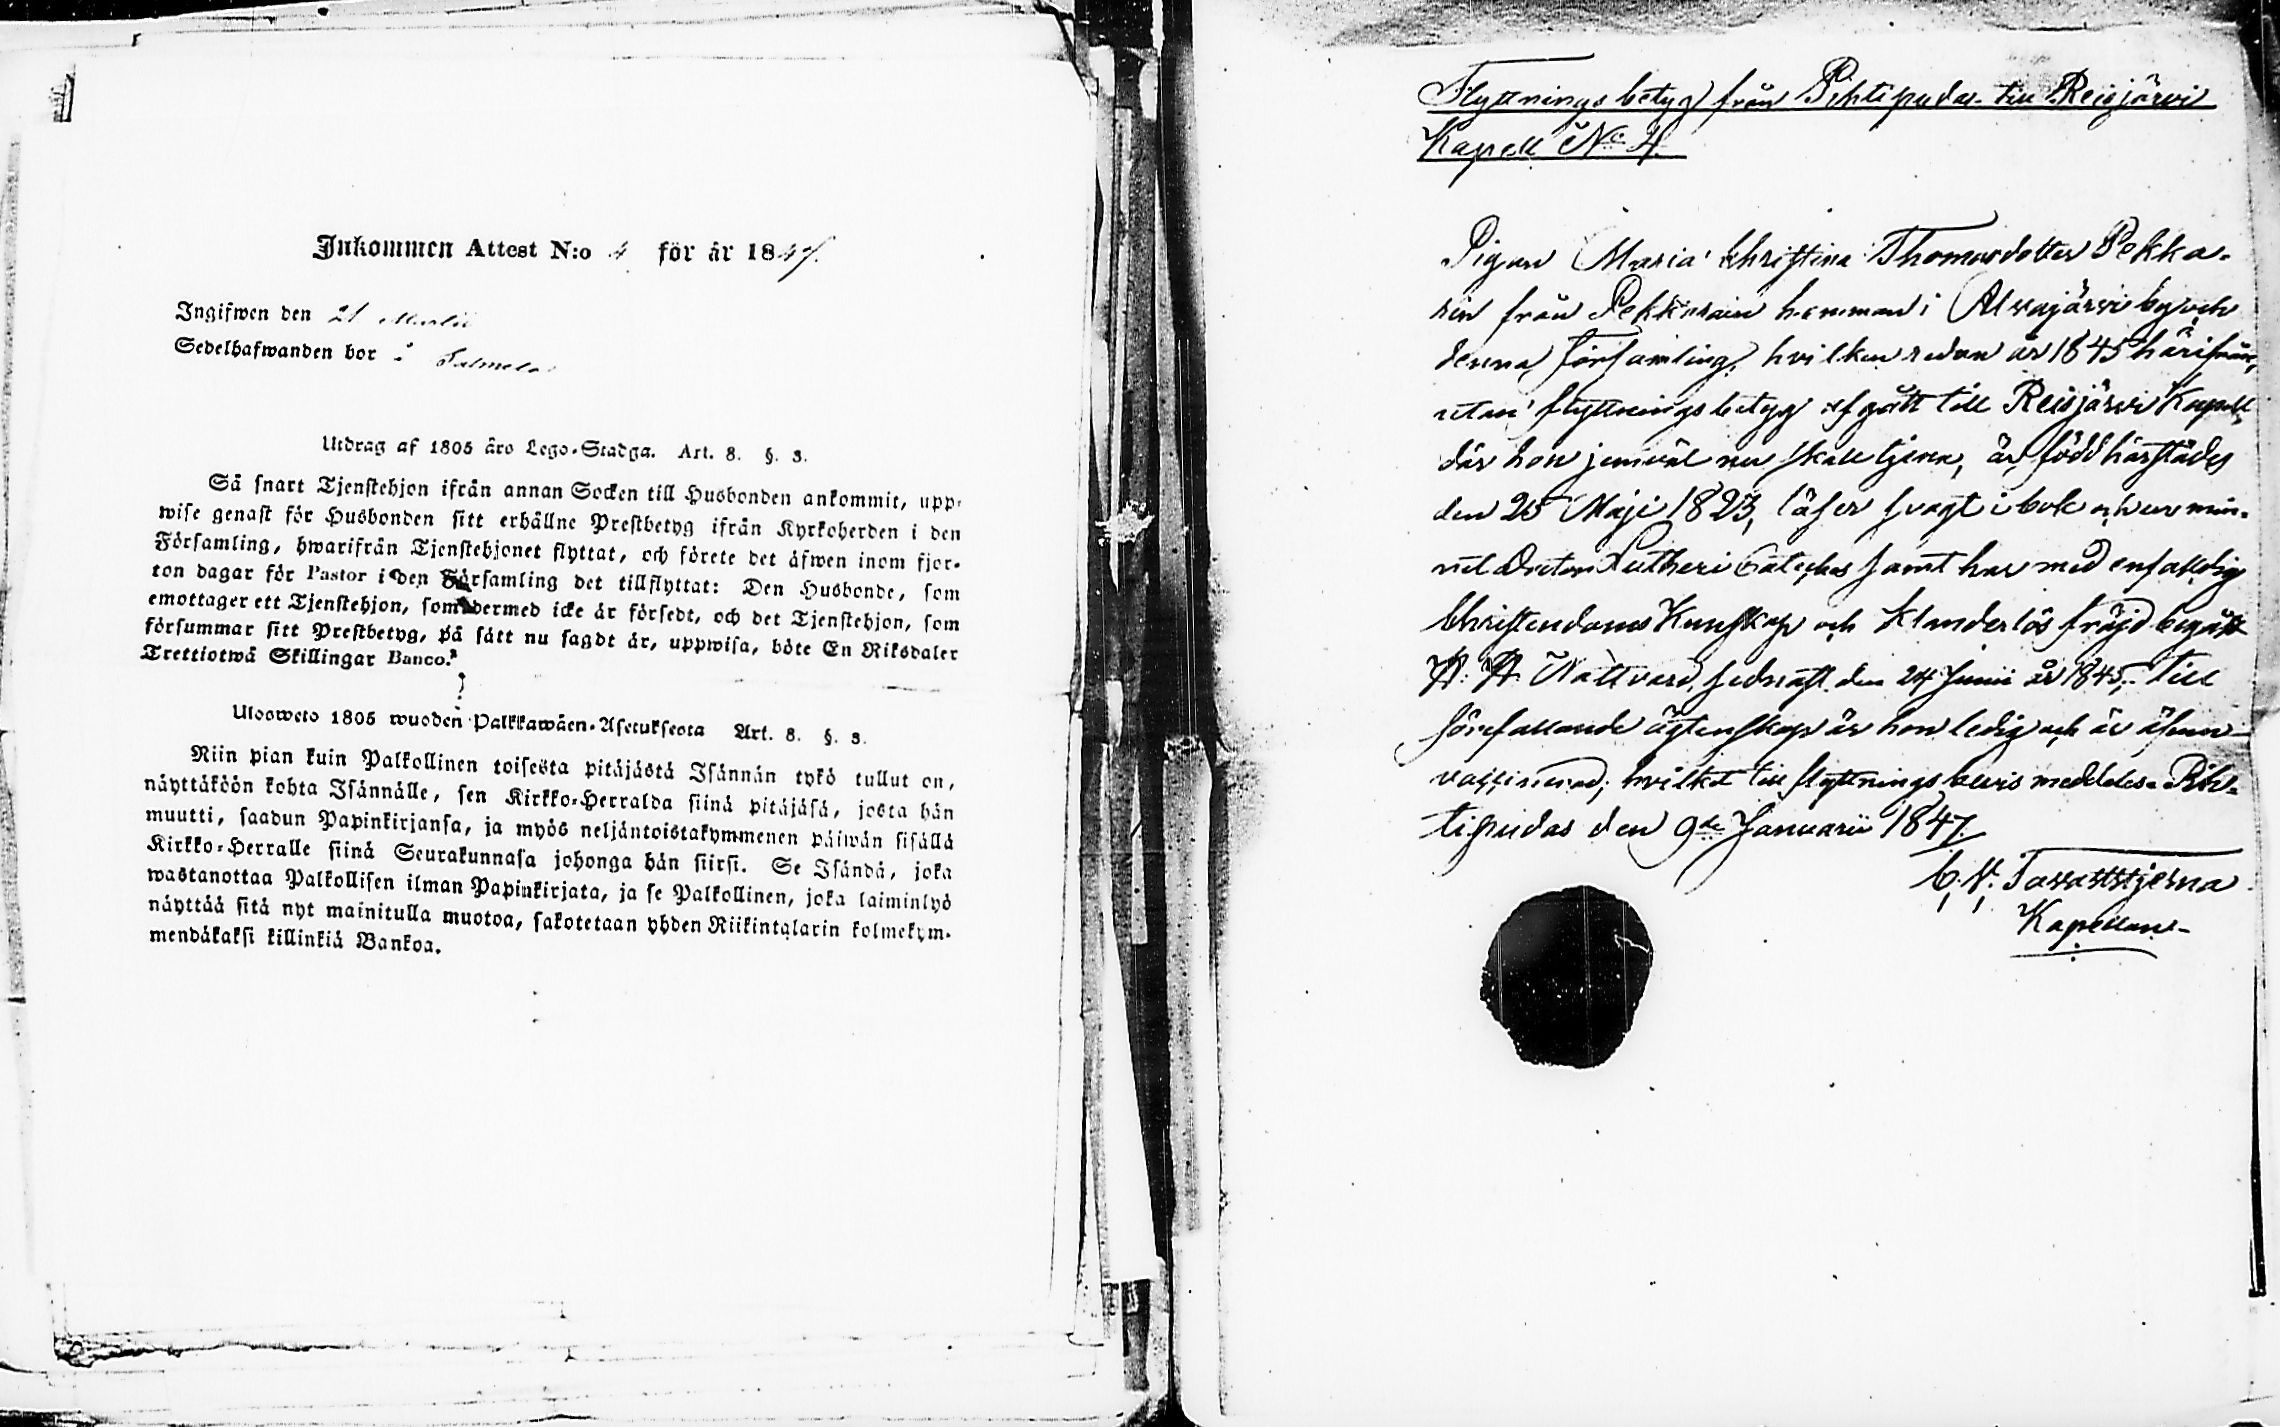 Inkommen Attest N:o 4 för år 1847.
Ingifwen den 21 Martii
Sedelhafwanden bor å Salmela
Utdrag af 1805 års Lego-Stadga. Art. 8. §. 3.
Så snart Tjenstehjon ifrån annan Socken till Husbonden ankommit, upp-
wise genast för Husbonden sitt erhållne Prestbetyg ifrån Kyrkoherden i den
Församling, hwarifrån Tjenstehjonet flyttat, och förete det äfwen inom fjor-
ton dagar för Pastor i den Församling det tillflyttat: Den Husbonde, som
emottager ett Tjenstehjon, som dermed icke är försedt, och det Tjenstehjon, som
försummar sitt Prestbetyg, på sätt nu sagdt är, uppwisa, böte En Riksdaler
Trettiotwå Skillingar Banco.
Ulosweto 1805 wuoden Palkkawäen-Asetuksesta Art. 8. §. 3.
Niin pian kuin Palkollinen toisesta pitäjästä Isännän tykö tullut on,
näyttäköön kohta Isännälle, sen Kirkko-Herralda siinä pitäjäsä, josta hän
muutti, saadun Papinkirjansa, ja myös neljäntoistakymmenen päiwän sisällä
Kirkko-Herralle siinä Seurakunnasa johonga hän siirsi. Se Isändä, joka
wastanottaa Palkollisen ilman Papinkirjata, ja se Palkollinen, joka laiminlyö
näyttää sitä nyt mainitulla muotoa, sakotetaan yhden Riikintalarin kolmekym-
mendäkaksi killinkiä Bankoa.
Flyttningsbetyg från Pihtipudas till Reisjärvi
Kapell No 4.
Pigan Maria Christina Thomasdotter Pekka-
rin från Pekkarain hemman i Alvajärvi by och
denna församling, hvilken redan år 1845 härifrån,
utan flyttningsbetyg afgått till Reisjärvi Kapell,
där hon jemväl nu skall tjena, är född härstädes
den 25 Maji 1823, läser svagt i bok och ur min-
net Doctor Lutheri Cateches samt har med enfaldig
Christendoms Kunskap och klanderlös fräjd begått
H. H. Nattvard sednast den 24 Junii år 1845. Till
förefallande ägtenskap är hon ledig och är äfven
vaccinerad; hvilket till flyttnings bevis meddeles. Pih-
tipudas den 9de Januarii 1847.
C. N. Tavaststjerna
Kapellan